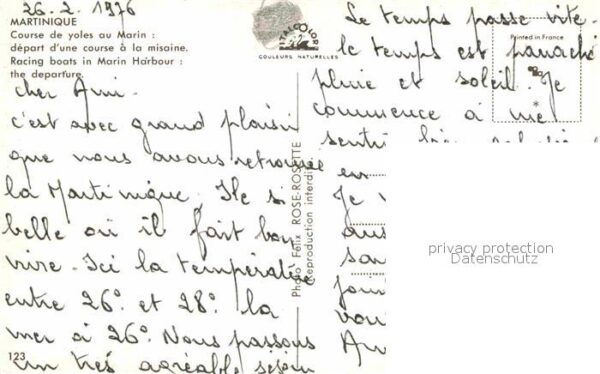 26.2.1976
MARTINIQUE
Course de yoles au Marin :
départ d'une course à la misaine.
Racing boats in Marin Harbour :
the departure.
cher Ami.
c'est avec grand plaisir
que nous avons retrouvé
la Martinique. Ile si
belle où il fait bon
vivre. Ici la température
entre 26° et 28° la
mer à 26°. Nous passons
un très agréable séjour
123
COULEURS NATURELLES
Photo Félix ROSE-ROSETTE
Reproduction interdite
Printed in France
Le temps passe vite.
le temps est panaché
pluie et soleil. Je
commence à me
sentir
en
Je
privacy protection
Datenschutz